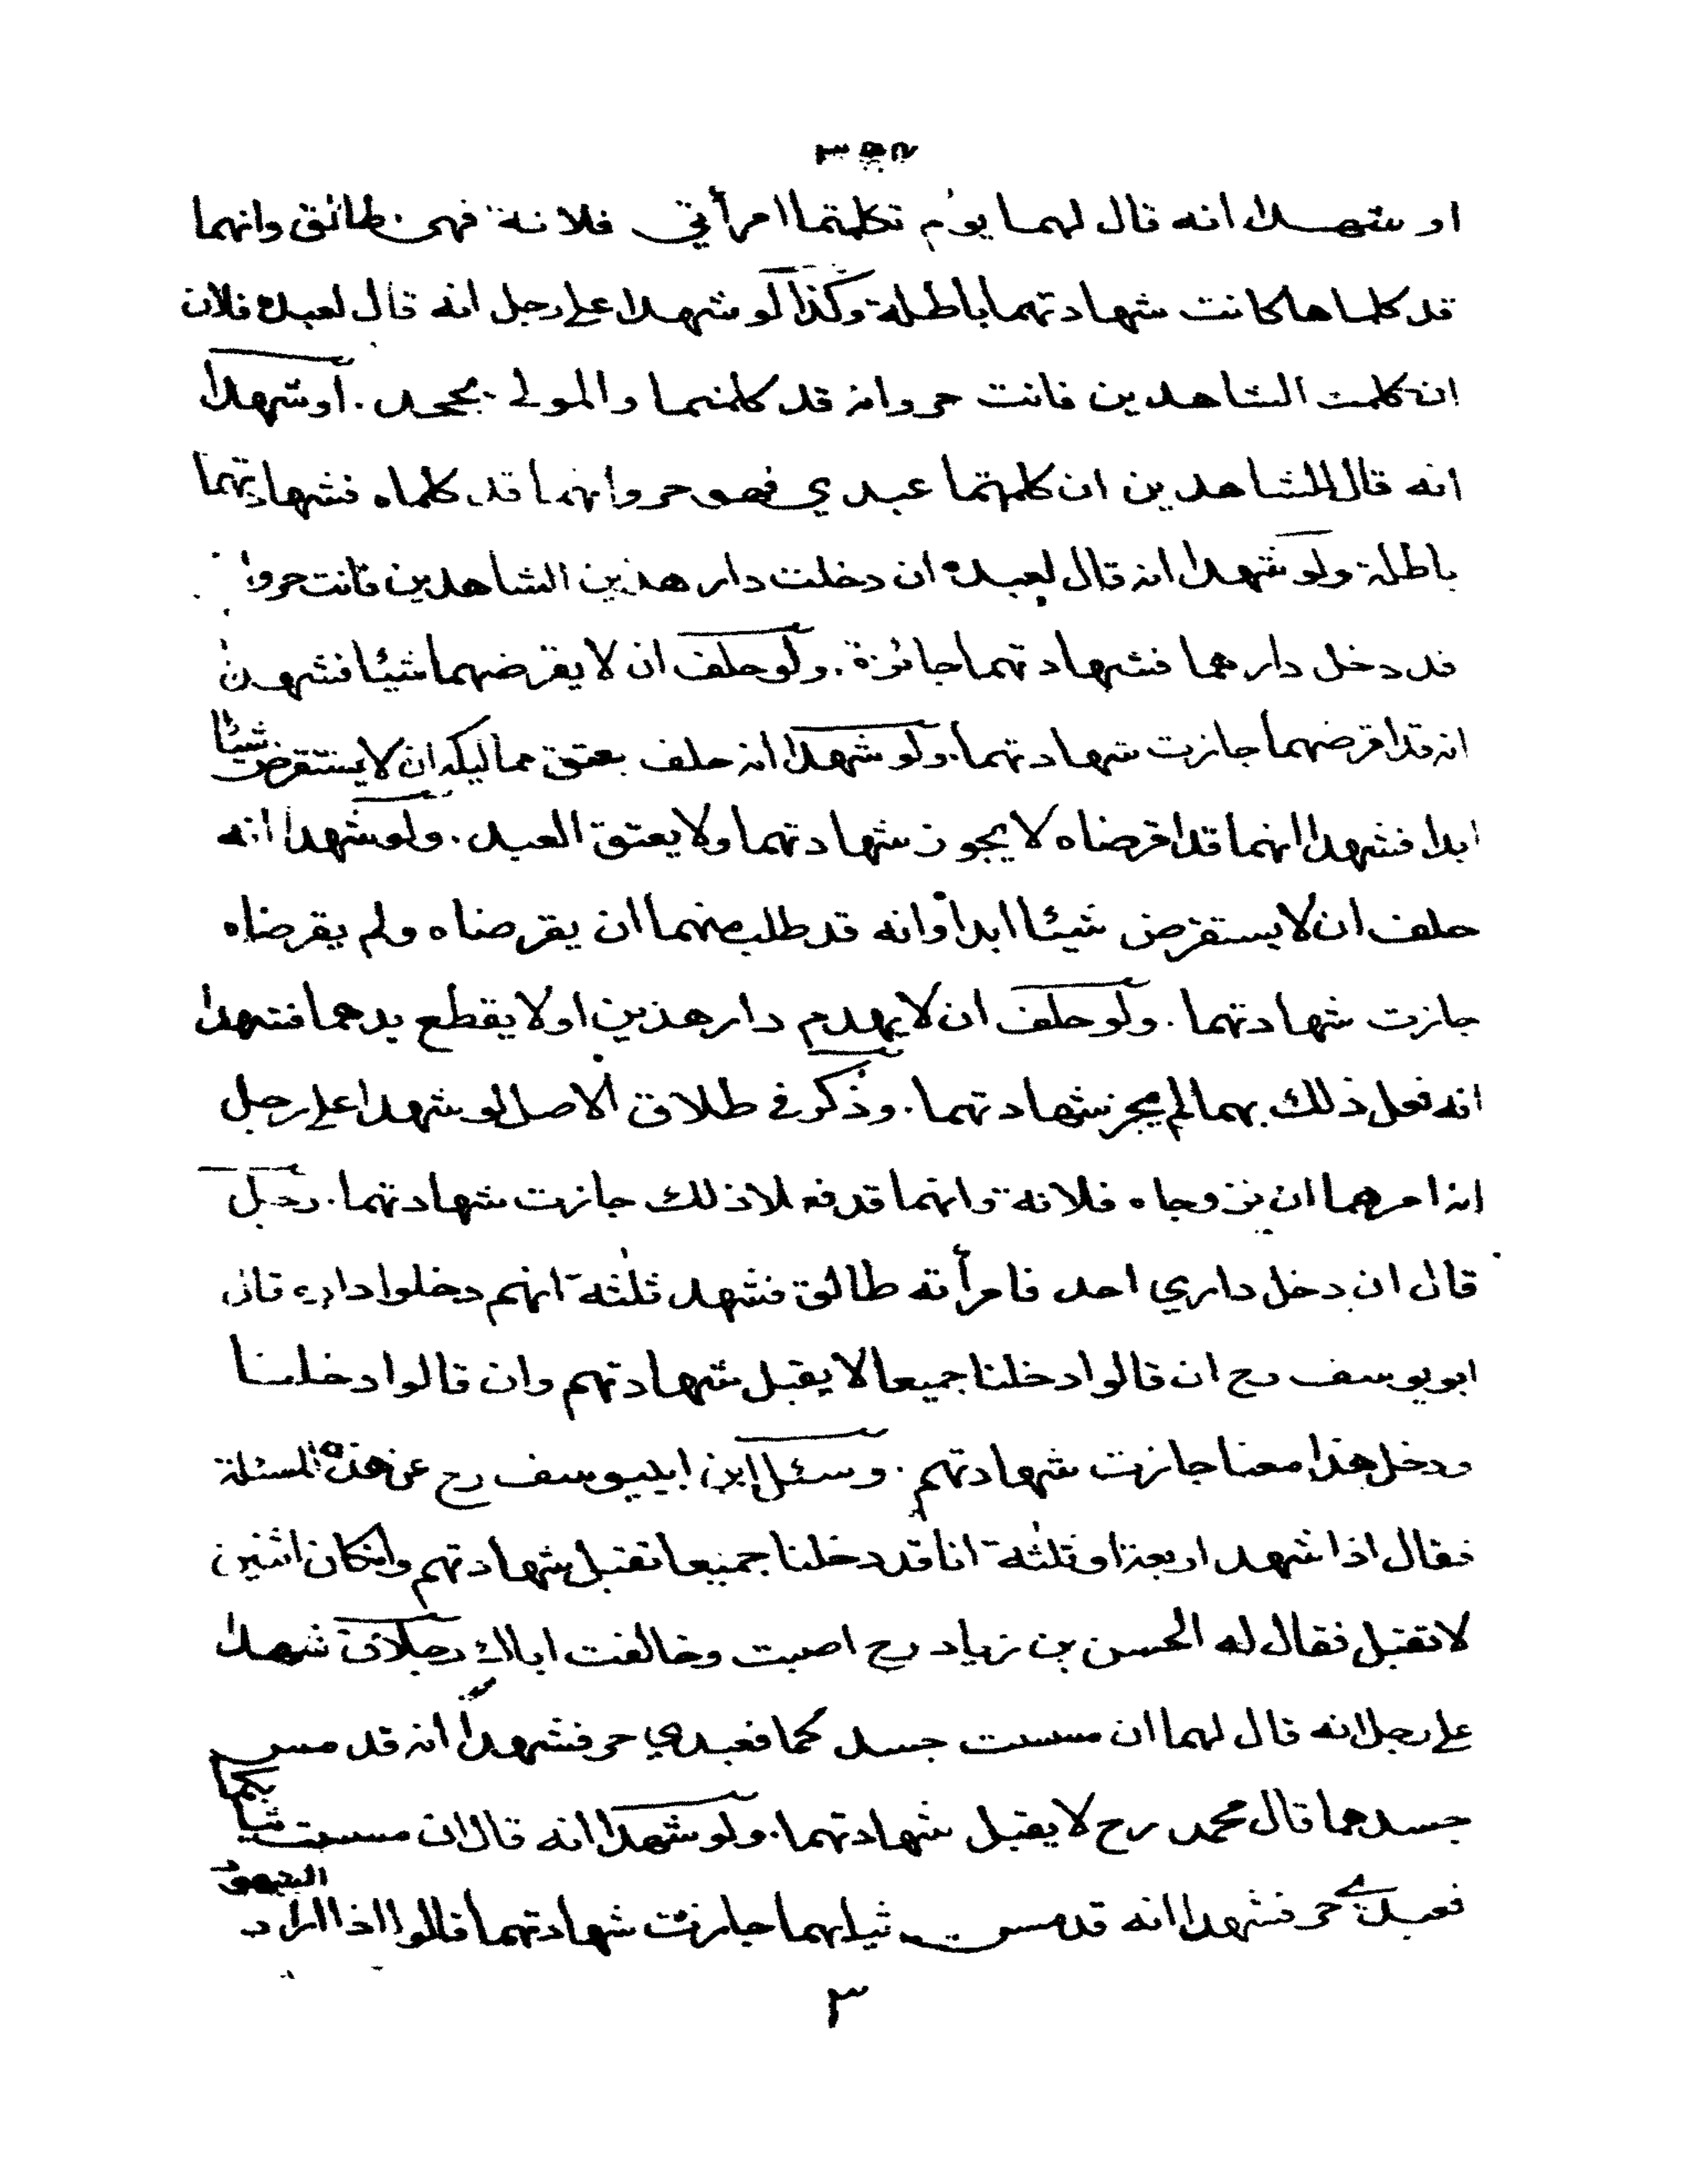 او شهدا انه قال لهما يوم تكلمتما امرأتي فلانة فهي طالق وانهما
قد كلماها كانت شهادتهما باطلة وكذا لو شهدا على رجل انه قال لعبده فلان
ان كلمت الشاهدين فانت حر وانه قد كلمهما والمولى يجحد. او شهدا
انه قال للشاهدين ان كلمتما عبدي فهو حر وانهما قد كلماه فشهادتهما
باطلة ولو شهدا انه قال لعبده ان دخلت دار هذين الشاهدين فانت حر وانه
قد دخل دارهما فشهادتهما جائزة. ولو حلف ان لا يقرضهما شيئا فشهدا
انه قد اقرضهما جازت شهادتهما. ولو شهدا انه حلف بعتق مماليكه ان لا يستقرض شيئا
ابدا فشهدا انهما قد اقرضاه لا يجوز شهادتهما ولا يعتق العبد. ولو شهدا انه
حلف ان لا يستقرض شيئا ابدا وانه قد طلب منهما ان يقرضاه ولم يقرضاه
جازت شهادتهما. ولو حلف ان لا يهدم دار هذين او لا يقطع يدهما فشهدا
انه فعل ذلك بهما لم يجز شهادتهما. وذكر في طلاق الاصل لو شهدا على رجل
انه امرهما ان يزوجاه فلانة وانهما قد فعلا ذلك جازت شهادتهما. رجل
قال ان دخل داري احد فامرأته طالق فشهد ثلثة انهم دخلوا داره قال
ابو يوسف رح ان قالوا دخلنا جميعا لا يقبل شهادتهم وان قالوا دخلنا
ودخل هذا معنا جازت شهادتهم. وسئل ابن ابي يوسف رح عن هذه المسئلة
فقال اذا شهد اربعة او ثلثة انا قد دخلنا جميعا تقبل شهادتهم وان كان اثنين
لا تقبل فقال له الحسن بن زياد رح اصبت وخالفت اباك رجلان شهدا
على رجل انه قال لهما ان مسست جسدكما فعبدي حر فشهدا انه قد مس
جسدهما قال محمد رح لا يقبل شهادتهما. ولو شهدا انه قال ان مسست ثيابكما
فعبدي حر فشهدا انه قد مس ثيابهما جازت شهادتهما قالوا اذا اراد الشهود
٣